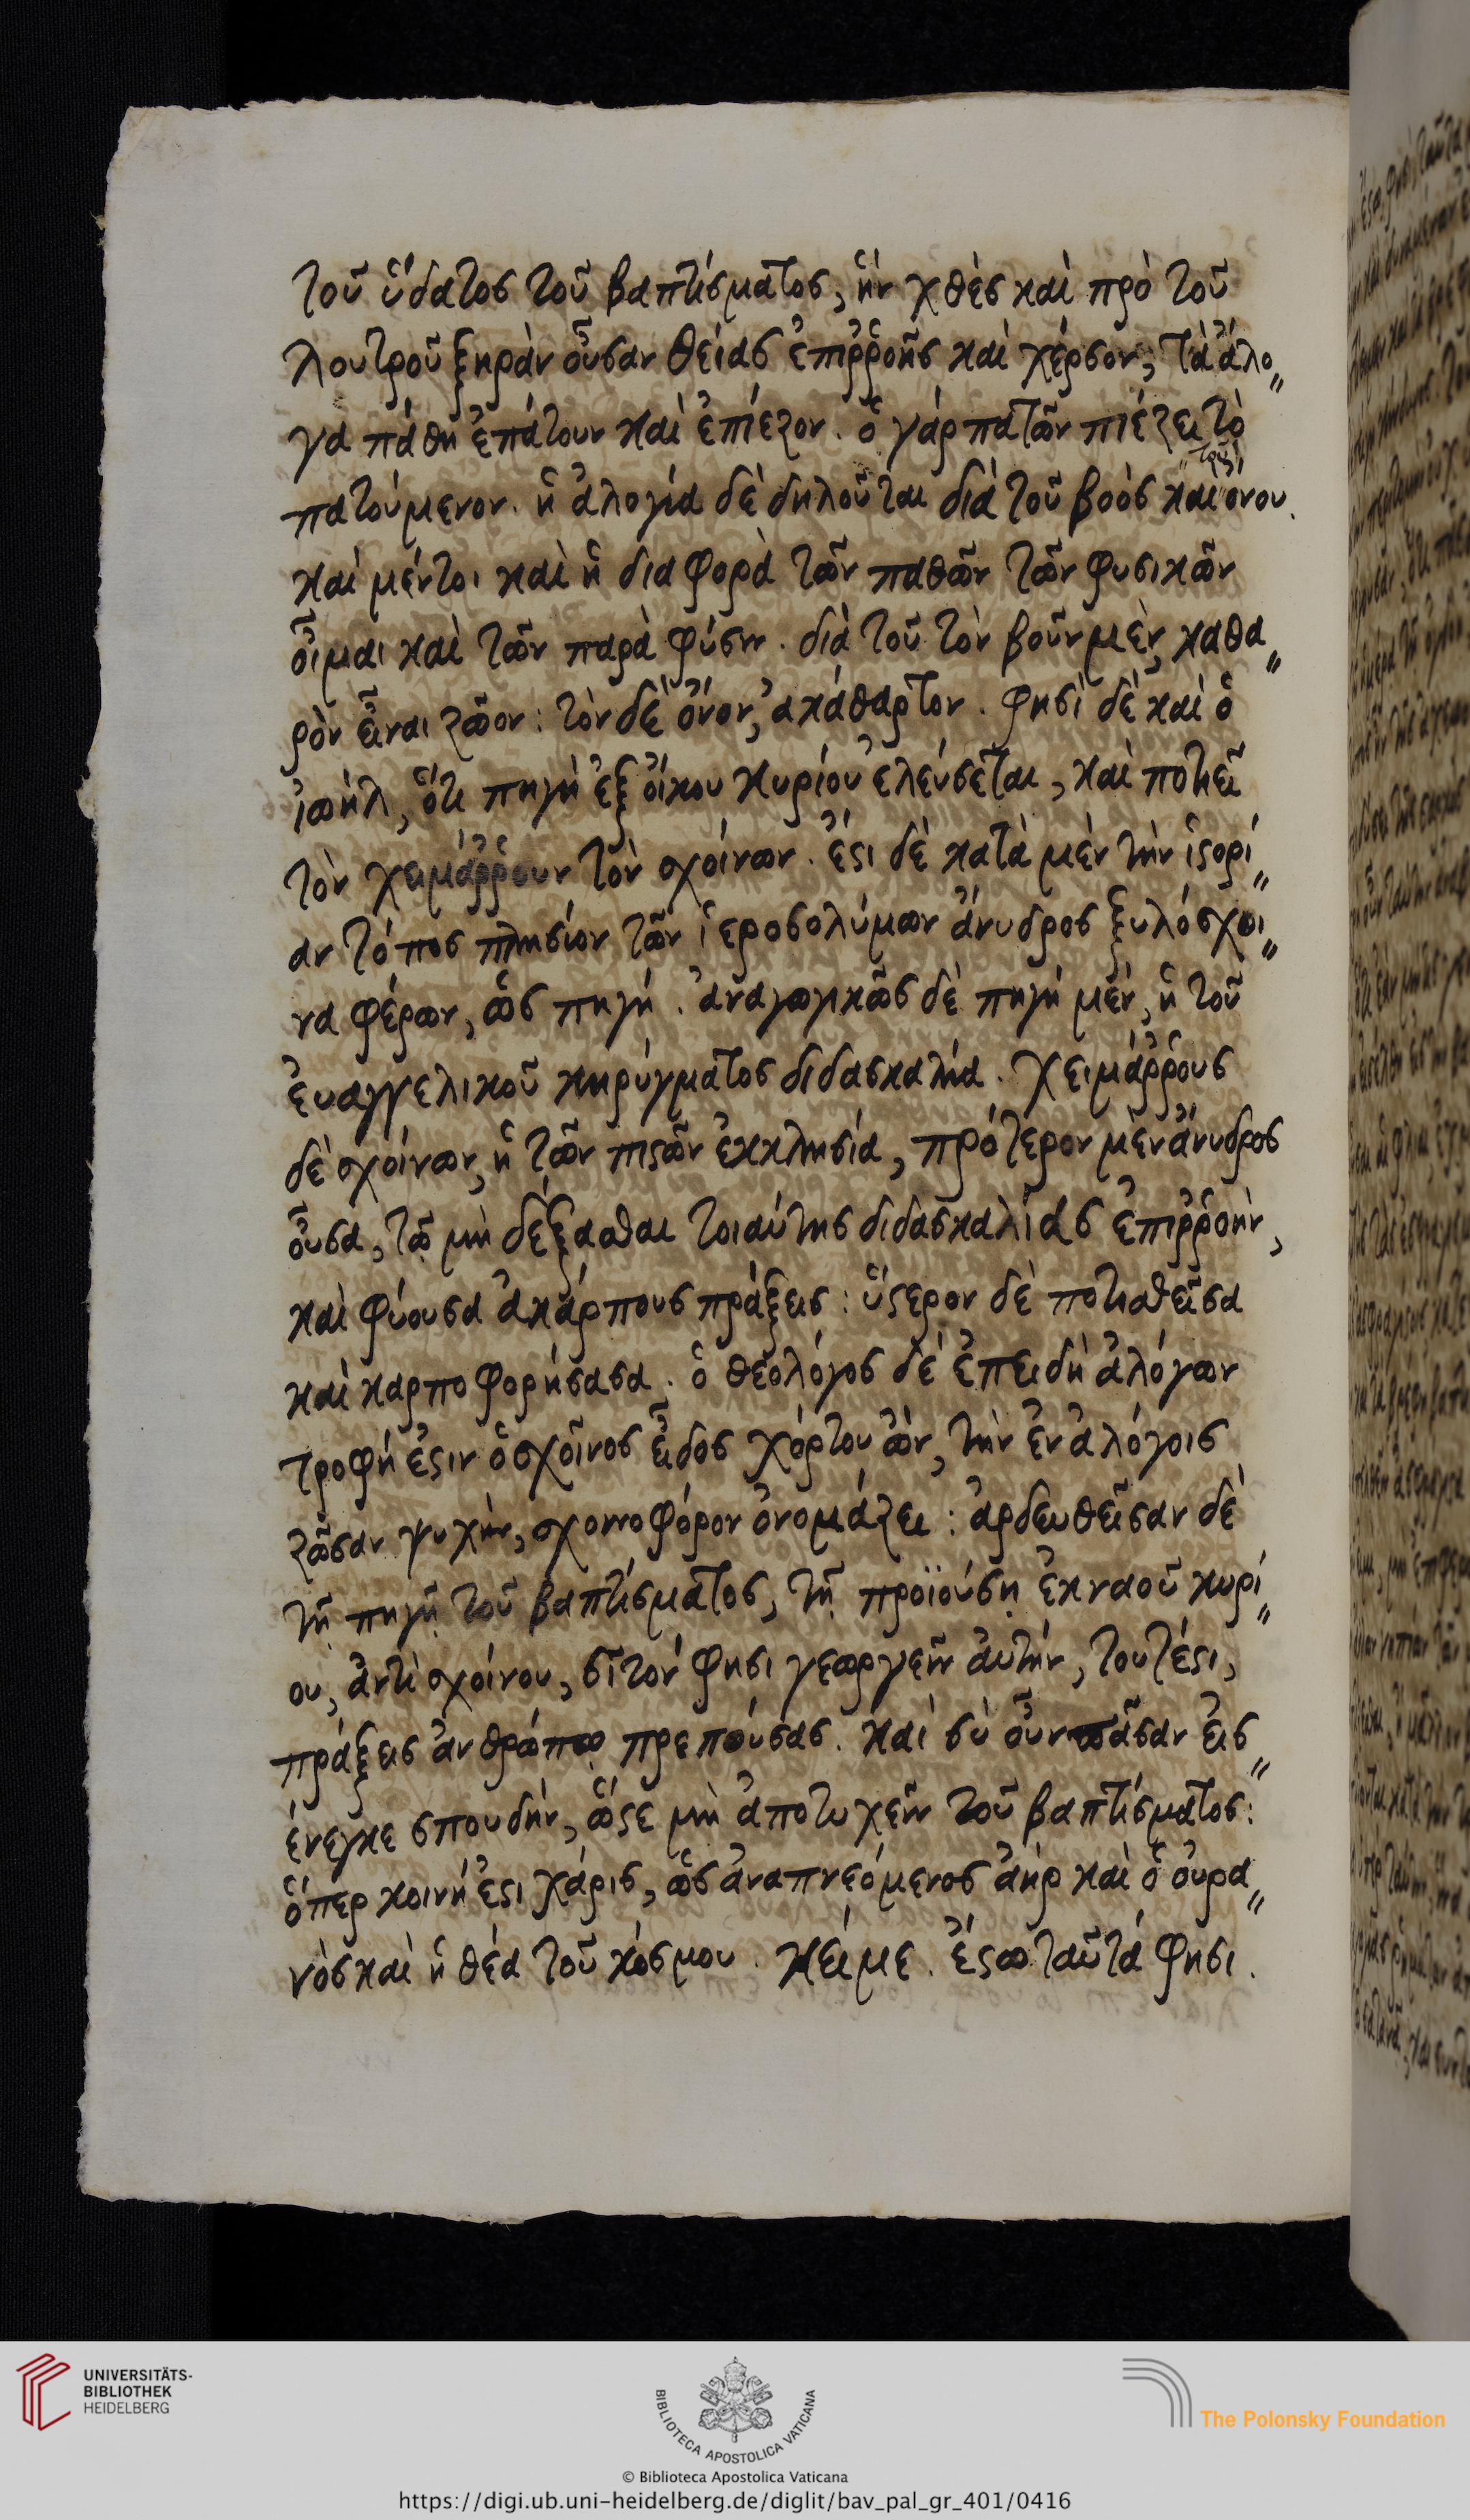 τοῦ ὕδατος τοῦ βαπτίσματος, ἣν χθὲς καὶ πρὸ τοῦ
λουτροῦ ξηρὰν οὖσαν θείας ἐπιῤῥοῆς καὶ χέρσον, τὰ ἄλο〃
γα πάθη ἐπάτουν καὶ ἐπίεζον. ὁ γὰρ πατῶν πιέζει τὸ
πατούμενον. ἡ ἀλογία δὲ δηλοῦται διὰ τοῦ βοὸς καὶ τοῦ ὄνου.
καὶ μέντοι καὶ ἡ διαφορὰ τῶν παθῶν τῶν φυσικῶν
οἶμαι καὶ τῶν παρὰ φύσιν. διὰ τοῦ τὸν βοῦν μὲν, καθα〃
ρὸν εἶναι ζῶον: τὸν δὲ ὄνον, ἀκάθαρτον. φησὶ δὲ καὶ ὁ
ἰωήλ, ὅτι πηγὴ ἐξ οἴκου κυρίου ἐλεύσεται, καὶ ποτιεῖ
τὸν χειμάῤῥουν τὸν σχοίνων. ἔστι δὲ κατὰ μὲν τὴν ἱστορί〃
αν τόπος πλησίον τῶν ἱεροσολύμων ἄνυδρος ξυλόσχοι〃
να φέρων, ὡς πηγή. ἀναγωγικῶς δὲ πηγὴ μὲν, ἡ τοῦ
ἐυαγγελικοῦ κηρύγματος διδασκαλία. χειμάῤῥους
δὲ σχοίνων, ἡ τῶν πιστῶν ἐκκλησία, πρότερον μὲν ἄνυδρος
οὖσα, τῷ μὴ δέξασθαι τοιαύτης διδασκαλίας ἐπιῤῥοὴν,
καὶ φύουσα ἀκάρπους πράξεις: ὕστερον δὲ ποτισθεῖσα
καὶ καρποφορήσασα. ὁ θεολόγος δὲ ἐπειδὴ ἀλόγων
τροφή ἐστιν ὁ σχοῖνος εἶδος χόρτου ὢν, τὴν ἐν ἀλόγοις
ζῶσαν ψυχὴν, σχοινοφόρον ὀνομάζει: ἀρδευθεῖσαν δὲ
τῇ πηγῇ τοῦ βαπτίσματος, τῇ προϊούσῃ ἐκ ναοῦ κυρί〃
ου, ἀντὶ σχοίνου, σῖτόν φησι γεωργεῖν ἀυτήν, τουτέστι,
πράξεις ἀνθρώπῳ πρεπούσας. καὶ σὺ οὖν πᾶσαν εἰσ〃
ένεγκε σπουδήν, ὥστε μὴ ἀποτυχεῖν τοῦ βαπτίσματος:
ὅπερ κοινή ἐστι χάρις, ὡς ἀναπνεόμενος ἀὴρ καὶ ὁ ὀυρα〃
νὸς καὶ ἡ θέα τοῦ κόσμου. κείμε. ἔστω ταῦτά φησι.
UNIVERSITÄTS-
BIBLIOTHEK
HEIDELBERG
BIBLIOTECA APOSTOLICA VATICANA
The Polonsky Foundation
© Biblioteca Apostolica Vaticana
https://digi.ub.uni-heidelberg.de/diglit/bav_pal_gr_401/0416